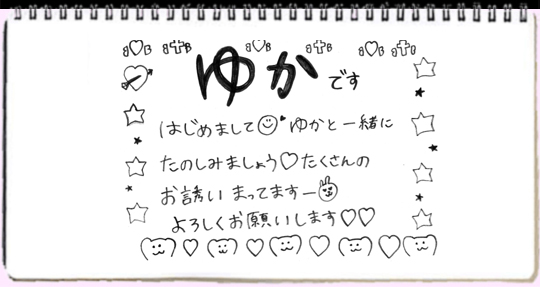 ゆか です
はじめまして ゆかと一緒に
たのしみましょう♡たくさんの
お誘い まってますー
よろしくお願いします♡♡